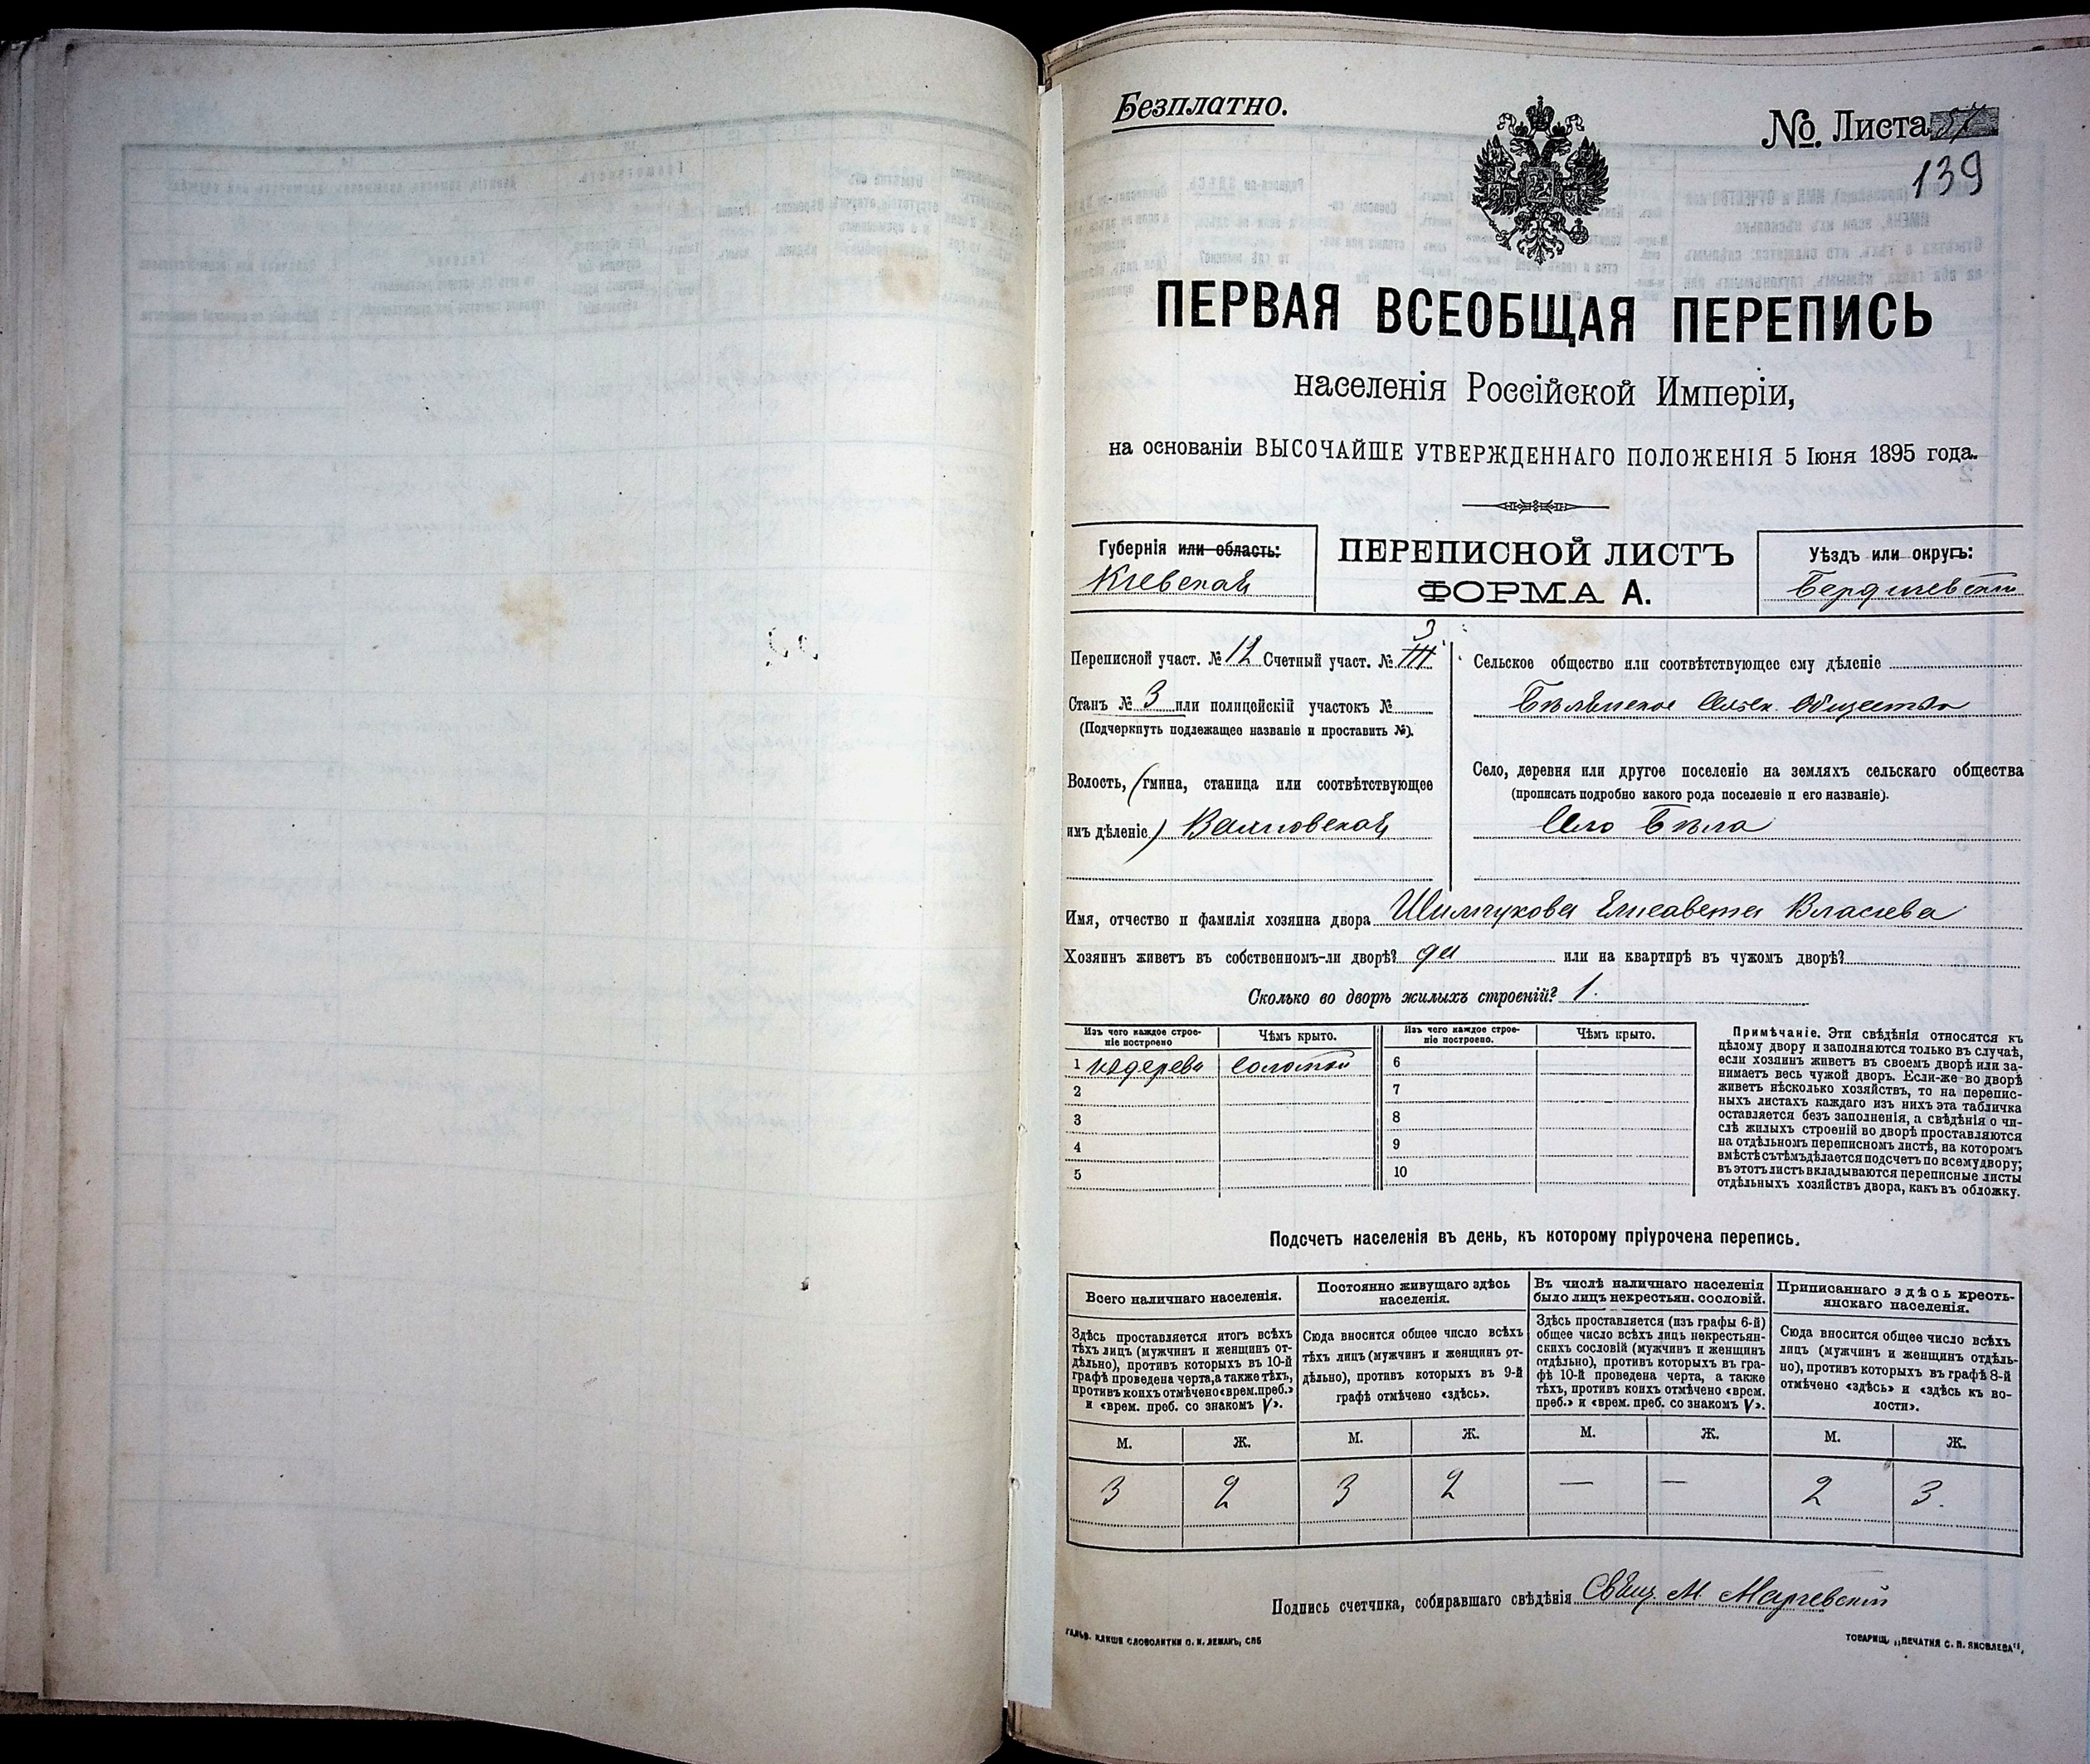 Безплатно.
№ Листа 57
139
ПЕРВАЯ ВСЕОБЩАЯ ПЕРЕПИСЬ
населенія Россійской Имперіи,
на основаніи ВЫСОЧАЙШЕ УТВЕРЖДЕННАГО ПОЛОЖЕНІЯ 5 Іюня 1895 года.
Губернія или область:
Кіевская
ПЕРЕПИСНОЙ ЛИСТЪ
ФОРМА А.
Уѣздъ или округъ:
Бердичевскій
Переписной участ. № 12 Счетный участ. № III 3
Станъ № 3 или полицейскій участокъ №
(Подчеркнуть подлежащее названіе и проставить №).
Волость, (гмина, станица или соотвѣтствующее
имъ дѣленіе)
Сельское общество или соотвѣтствующее ему дѣленіе
Сельск. Общество
Село, деревня или другое поселеніе на земляхъ сельскаго общества
(прописать подробно какого рода поселеніе и его названіе).
Село Бѣла
Имя, отчество и фамилія хозяина двора Елисавета Власіева
Хозяинъ живетъ въ собственномъ-ли дворѣ? да или на квартирѣ въ чужомъ дворѣ?
Сколько во дворѣ жилыхъ строеній? 1.
Изъ чего каждое строе-
ніе построено
Чѣмъ крыто.
Изъ чего каждое строе-
ніе построено.
Чѣмъ крыто.
1 изъ дерева соломой
2
3
4
5
6
7
8
9
10
Примѣчаніе. Эти свѣдѣнія относятся къ
цѣлому двору и заполняются только въ случаѣ,
если хозяинъ живетъ въ своемъ дворѣ или за-
нимаетъ весь чужой дворъ. Если-же во дворѣ
живетъ нѣсколько хозяйствъ, то на перепис-
ныхъ листахъ каждаго изъ нихъ эта табличка
оставляется безъ заполненія, а свѣдѣнія о чи-
слѣ жилыхъ строеній во дворѣ проставляются
на отдѣльномъ переписномъ листѣ, на которомъ
вмѣстѣ съ тѣмъ дѣлается подсчетъ по всему двору;
въ этотъ листъ вкладываются переписные листы
отдѣльныхъ хозяйствъ двора, какъ въ обложку.
Подсчетъ населенія въ день, къ которому пріурочена перепись.
Всего наличнаго населенія.
Здѣсь проставляется итогъ всѣхъ
тѣхъ лицъ (мужчинъ и женщинъ от-
дѣльно), противъ которыхъ въ 10-й
графѣ проведена черта, а также тѣхъ,
противъ коихъ отмѣчено «врем. преб.»
и «врем. преб. со знакомъ V».
Постоянно живущаго здѣсь
населенія.
Сюда вносится общее число всѣхъ
тѣхъ лицъ (мужчинъ и женщинъ от-
дѣльно), противъ которыхъ въ 9-й
графѣ отмѣчено «здѣсь».
Въ числѣ наличнаго населенія
было лицъ некрестьян. сословій.
Здѣсь проставляется (изъ графы 6-й)
общее число всѣхъ лицъ некрестьян-
скихъ сословій (мужчинъ и женщинъ
отдѣльно), противъ которыхъ въ гра-
фѣ 10-й проведена черта, а также
тѣхъ, противъ коихъ отмѣчено «врем.
преб.» и «врем. преб. со знакомъ V».
Приписаннаго здѣсь кресть-
янскаго населенія.
Сюда вносится общее число всѣхъ
лицъ (мужчинъ и женщинъ отдѣль-
но), противъ которыхъ въ графѣ 8-й
отмѣчено «здѣсь» и «здѣсь къ во-
лости».
М. Ж. М. Ж. М. Ж. М. Ж.
3 2 3 2 — — 2 3.
Подпись счетчика, собиравшаго свѣдѣнія Свящ. М.
ГАЛЬВ. КЛИШЕ СЛОВОЛИТНИ О. И. ЛЕМАНЪ, СПБ
ТОВАРИЩ. „ПЕЧАТНЯ С. П. ЯКОВЛЕВА",